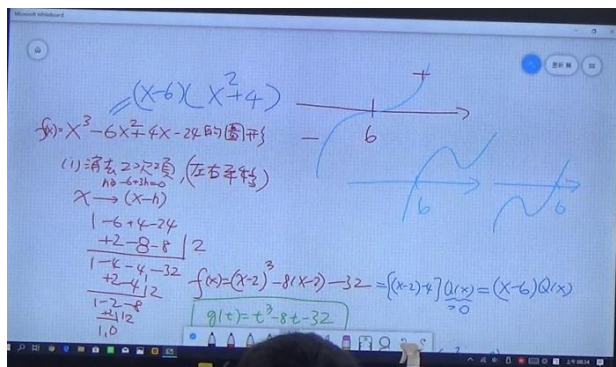 Microsoft Whiteboard
=(x-6)(x²+4)
f(x)=x³-6x²+4x-24的圖形
(1)消去2次項,(左右平移)
-6+3h=0
x→(x-h)
1-6+4-24
+2-8-8 2
1-4-4-32
+2-4 2
1-2-8
+2 2
1,0
f(x)=(x-2)³-8(x-2)-32=[(x-2)-4]Q(x)=(x-6)Q(x)
>0
g(t)=t³-8t-32
+
-
6
6
6